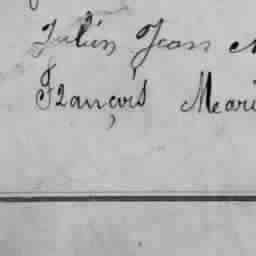 Julien Jean M
François Mari